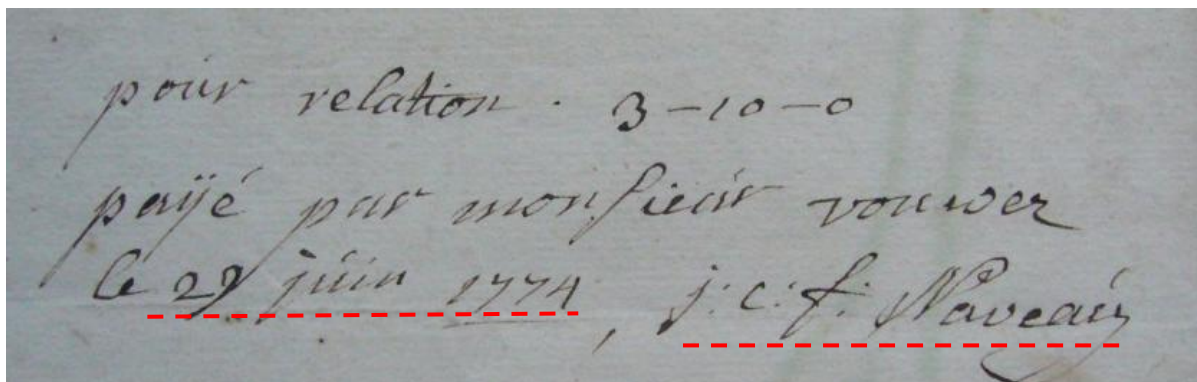 pour relation . 3-10-0
payé par monsieur vouwer
le 29 juin 1774, j: c: f: Naveau